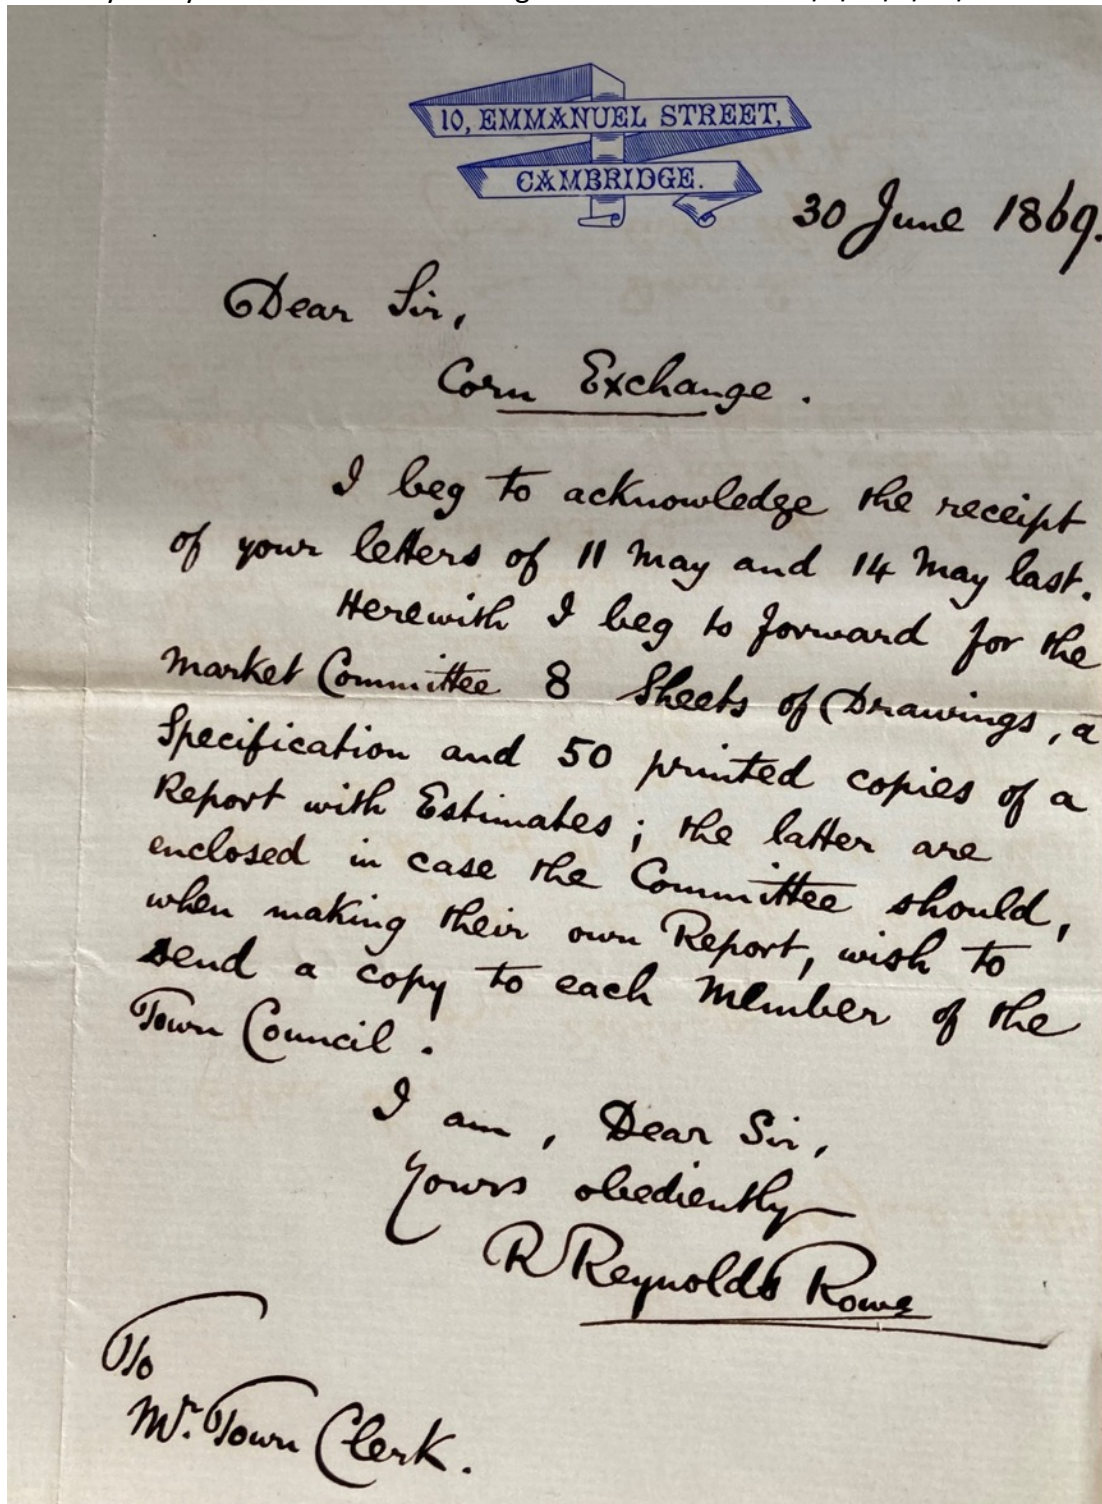 10, EMMANUEL STREET,
CAMBRIDGE.
30 June 1869.
Dear Sir,
Corn Exchange.
I beg to acknowledge the receipt
of your letters of 11 May and 14 May last.
Herewith I beg to forward for the
Market Committee 8 Sheets of Drawings, a
Specification and 50 printed copies of a
Report with Estimates; the latter are
enclosed in case the Committee should,
when making their own Report, wish to
send a copy to each Member of the
Town Council.
I am, Dear Sir,
Yours obediently
R Reynolds Rowe
To
Mr. Town Clerk.